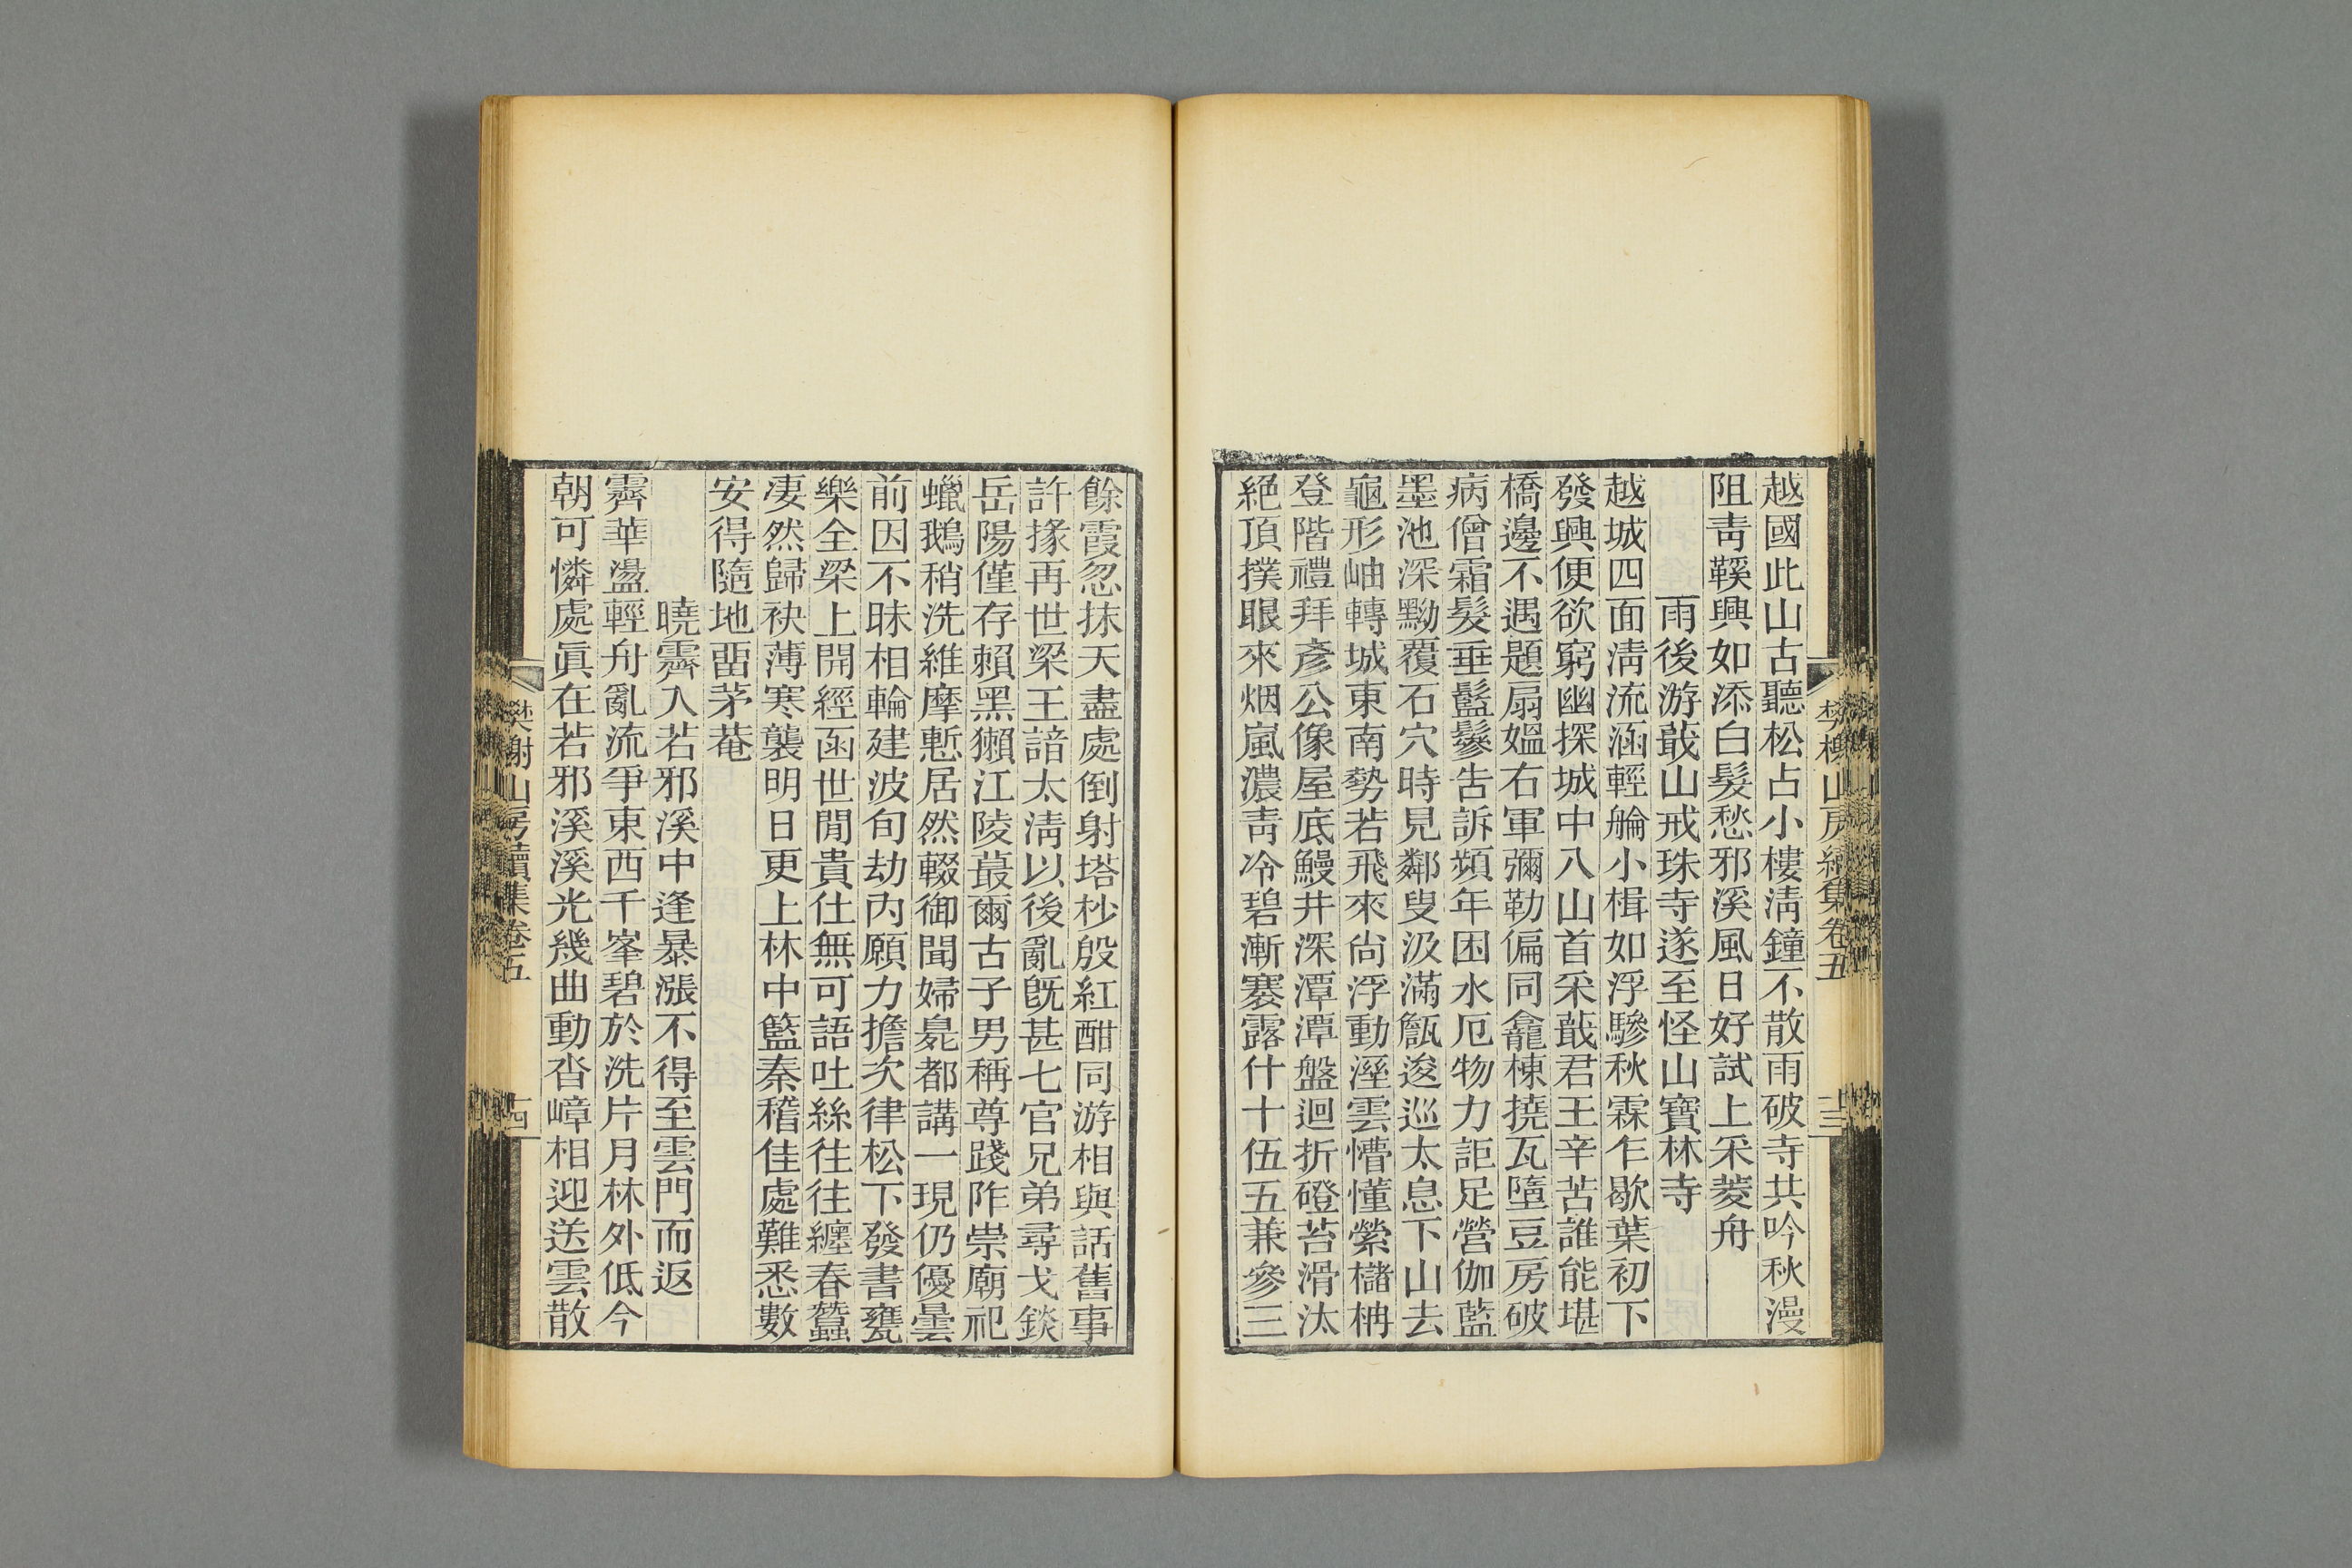 越國此山古聽松占小樓淸鐘不散雨破寺共吟秋漫
阻靑鞵興如添白髮愁邪溪風日好試上采菱舟
雨後游蕺山戒珠寺遂至怪山寶林寺
越城四面淸流涵輕艑小楫如浮驂秋霖乍歇葉初下
發興便欲窮幽探城中八山首采蕺君王辛苦誰能堪
橋邊不遇題扇媼右軍彌勒偏同龕棟撓瓦墮豆房破
病僧霜髮垂鬖鬖告訴頻年困水厄物力詎足營伽藍
墨池深黝覆石穴時見鄰叟汲滿甔逡巡太息下山去
龜形岫轉城東南勢若飛來尙浮動溼雲懵懂縈櫧枏
登階禮拜彥公像屋底鰻井深潭潭盤迴折磴苔滑汰
絕頂撲眼來烟嵐濃靑冷碧漸褰露什十伍五兼參三
樊榭山房續集卷五
十三
餘霞忽抹天盡處倒射塔杪殷紅酣同游相與話舊事
許掾再世梁王諳太淸以後亂旣甚七官兄弟尋戈錟
岳陽僅存賴黑獺江陵蕞爾古子男稱尊踐阼崇廟祀
蠟鵝稍洗維摩慙居然輟御聞婦毚都講一現仍優曇
前因不昧相輪建波旬劫內願力擔次律松下發書甕
樂全梁上開經函世閒貴仕無可語吐絲往往纏春蠶
淒然歸袂薄寒襲明日更上林中籃秦稽佳處難悉數
安得隨地畱茅菴
曉霽入若邪溪中逢暴漲不得至雲門而返
霽華盪輕舟亂流爭東西千峯碧於洗片月林外低今
朝可憐處眞在若邪溪溪光幾曲動沓嶂相迎送雲散
樊榭山房續集卷五
十四